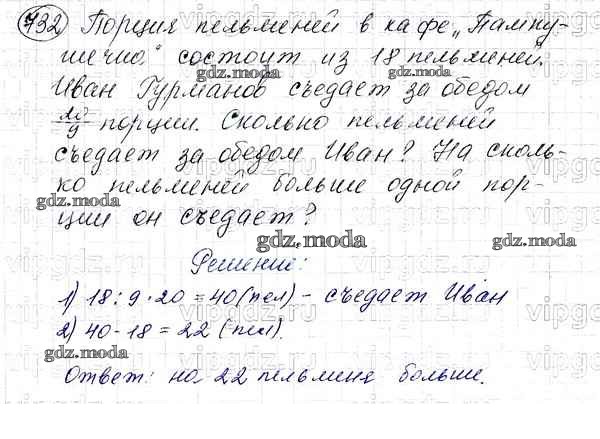 732 Порция пельменей в кафе „Пампу-
шечка" состоит из 18 пельменей.
Иван Гурманов съедает за обедом
20/9 порции. Сколько пельменей
съедает за обедом Иван? На сколь-
ко пельменей больше одной пор-
ции он съедает?
Решение:
1) 18 : 9 · 20 = 40 (пел) - съедает Иван
2) 40 - 18 = 22 (пел).
Ответ: на 22 пельменя больше.
gdz.moda
gdz.moda
gdz.moda
gdz.moda
gdz.moda
gdz.moda
gdz.moda
gdz.moda